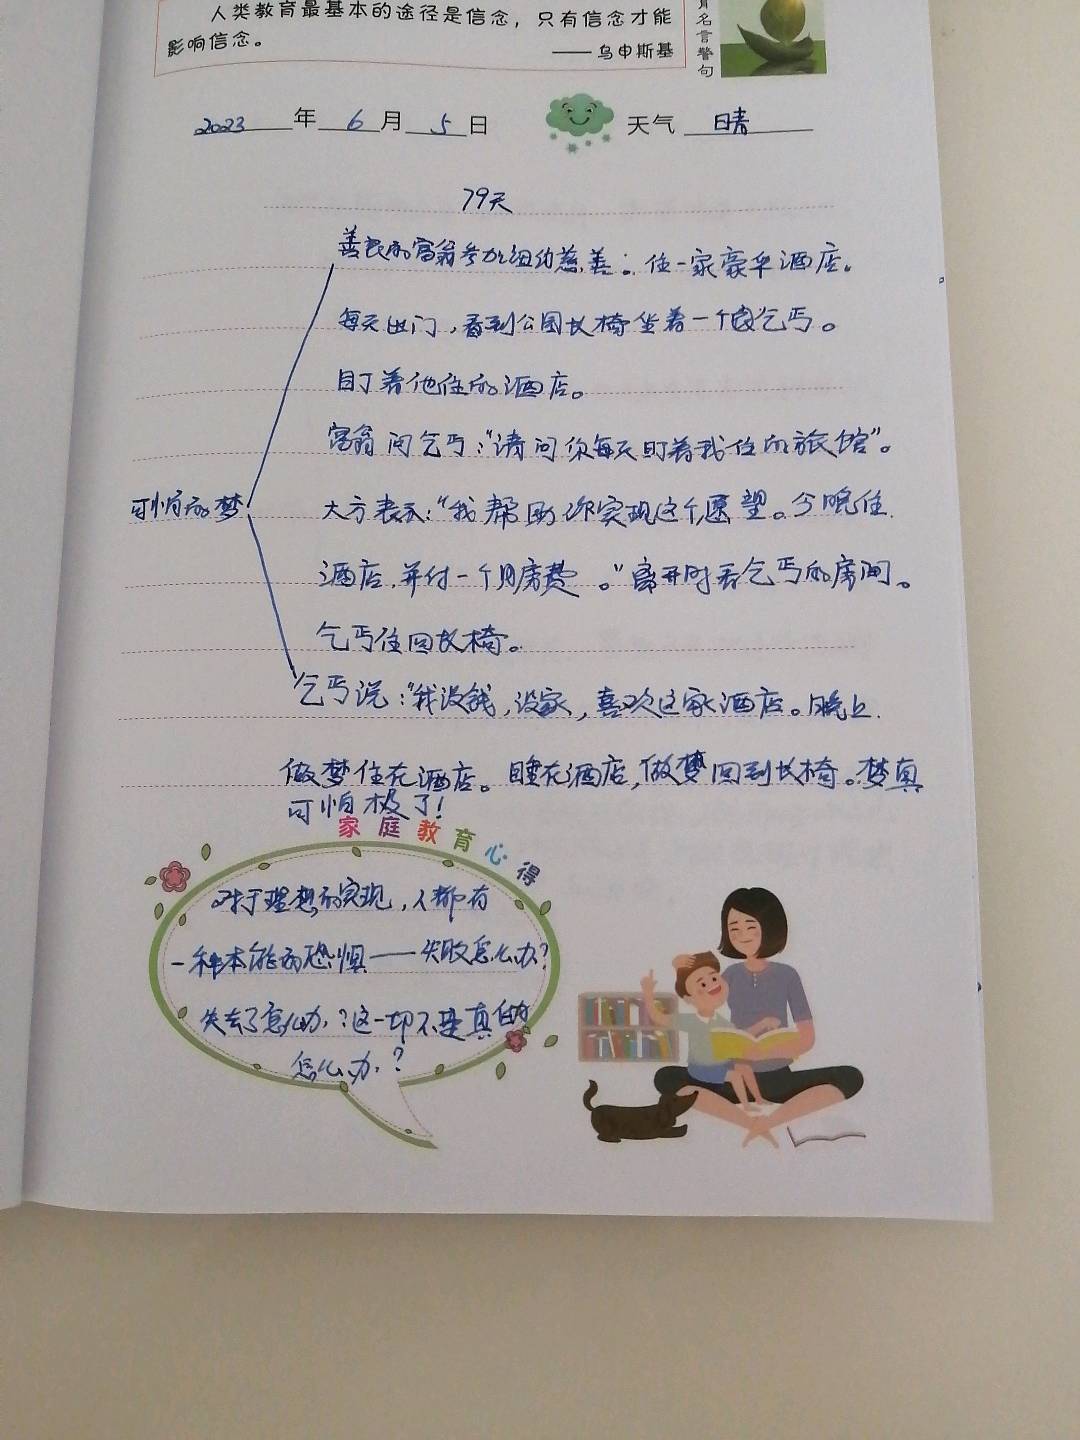 人类教育最基本的途径是信念，只有信念才能
影响信念。
——乌申斯基
名言警句
2023年6月5日 天气 晴
79天
善良的富翁参加纽约慈善。住一家豪华酒店。
每天出门，看到公园长椅坐着一个乞丐。
盯着他住的酒店。
富翁问乞丐："请问你每天盯着我住的旅馆"。
可怕的梦
大方表示："我帮助你实现这个愿望。今晚住
酒店，并付一个月房费。"离开时看乞丐的房间。
乞丐住回长椅。
乞丐说："我没钱，没家，喜欢这家酒店。晚上
做梦住在酒店。睡在酒店，做梦回到长椅。梦真
可怕极了！
家庭教育心得
对于理想的实现，人都有
一种本能的恐惧——失败怎么办？
失去了怎么办？这一切不是真的
怎么办？